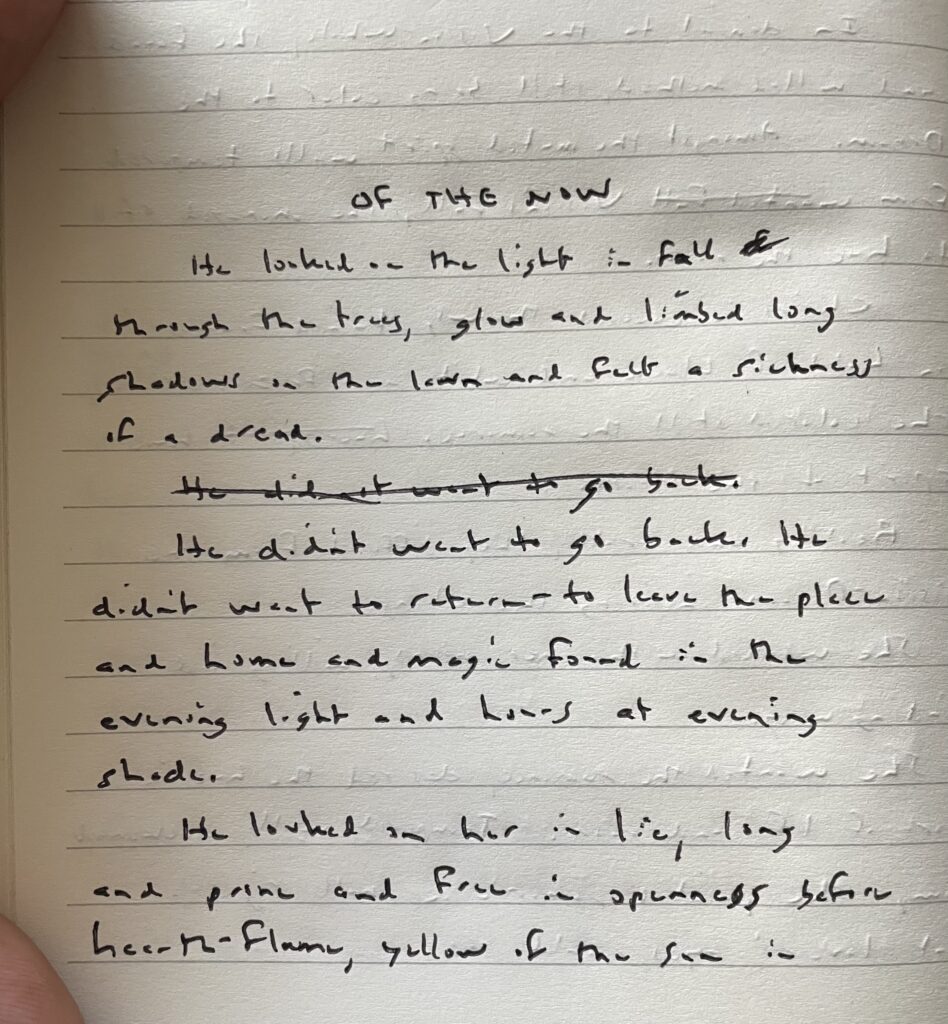 OF THE NOW
He looked on the light in fall
through the trees, glow and limbed long
shadows on the lawn and felt a sickness
of a dread.
He did not want to go back.
He didn't want to go back. He
didn't want to return - to leave the place
and home and magic found in the
evening light and hours at evening
shade.
He looked on her in lie, long
and prone and free in openness before
hearth-flame, yellow of the sun in